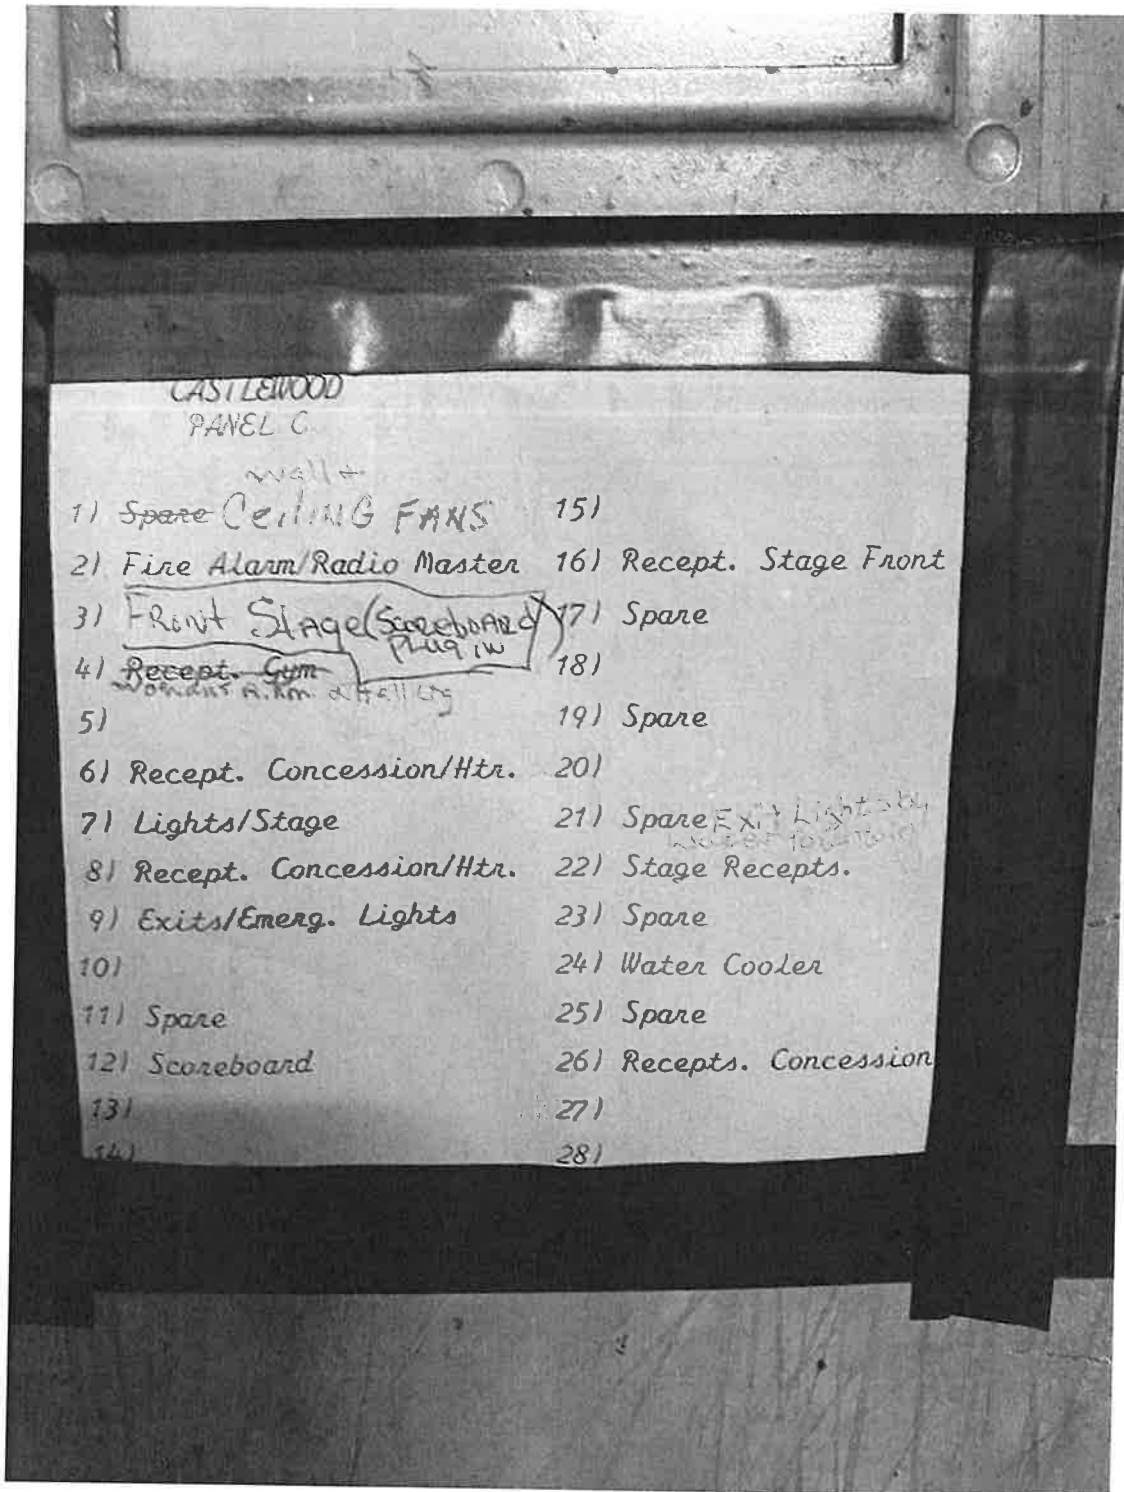 CASTLEWOOD
PANEL C
wall +
1) Spare CeiliNG FANS
2) Fire Alarm/Radio Master
3) FRONT StAge (ScoreboARd
Plug iN)
4) Recept. Gym
R. Rm. & Hall Ltg
5)
6) Recept. Concession/Htr.
7) Lights/Stage
8) Recept. Concession/Htr.
9) Exits/Emerg. Lights
10)
11) Spare
12) Scoreboard
13)
14)
15)
16) Recept. Stage Front
17) Spare
18)
19) Spare
20)
21) Spare Exit Lights by
water
22) Stage Recepts.
23) Spare
24) Water Cooler
25) Spare
26) Recepts. Concession
27)
28)